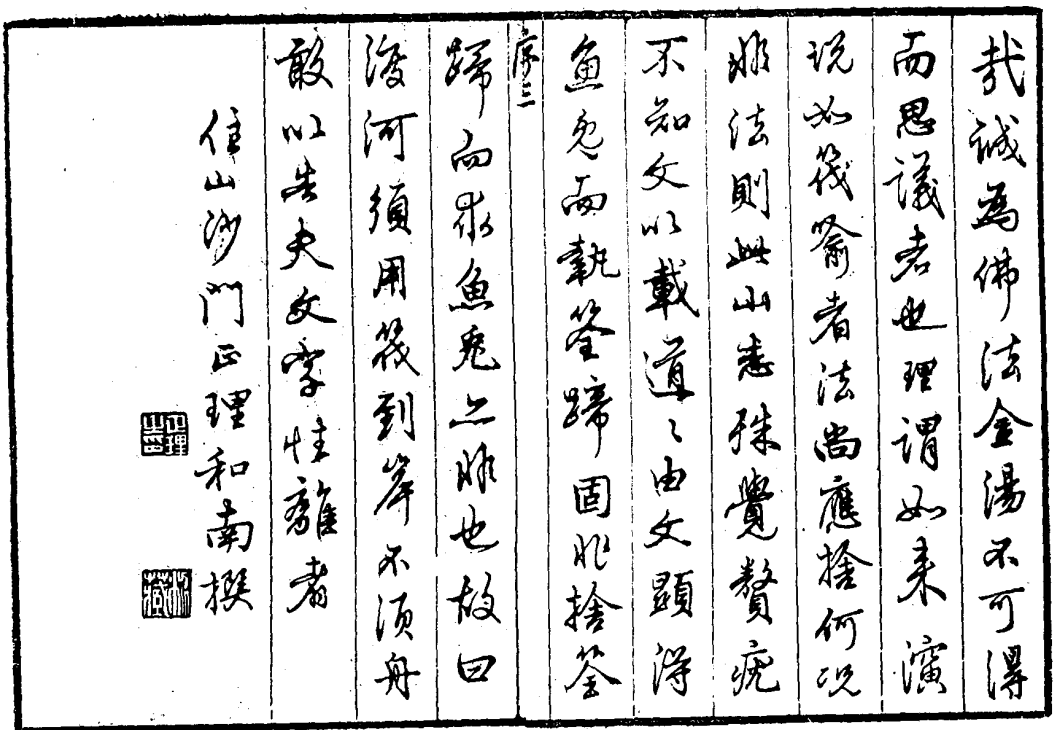 哉誠為佛法金湯不可得
而思議者也理謂如来演
说如筏喻者法尚應捨何况
非法則此山志殊覺贅疣
不知文以載道々由文顯得
魚兎而執筌蹄固非捨筌
序三
蹄而求魚兎亦非也故曰
渡河須用筏到岸不須舟
敢以告夫文字性離者
住山沙門正理和南撰
正理之印